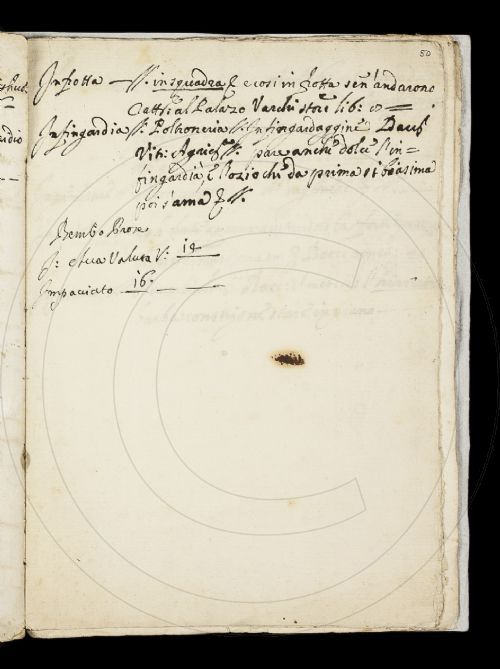 50
Infrotta — //. in squadra & e cosi in frotta sen' andarono
tutti al Palazo Varchi stor: lib: 10 =
Infingardia //: Poltroneria //: Infingardaggine Dav:
Vit: Agric: //. pare anch' dolce l'in=
fingardia, e l'ozio ch' da prima si biasima
poi s'ama & //.
Bembo Prose
V: 18
Impacciato 16.